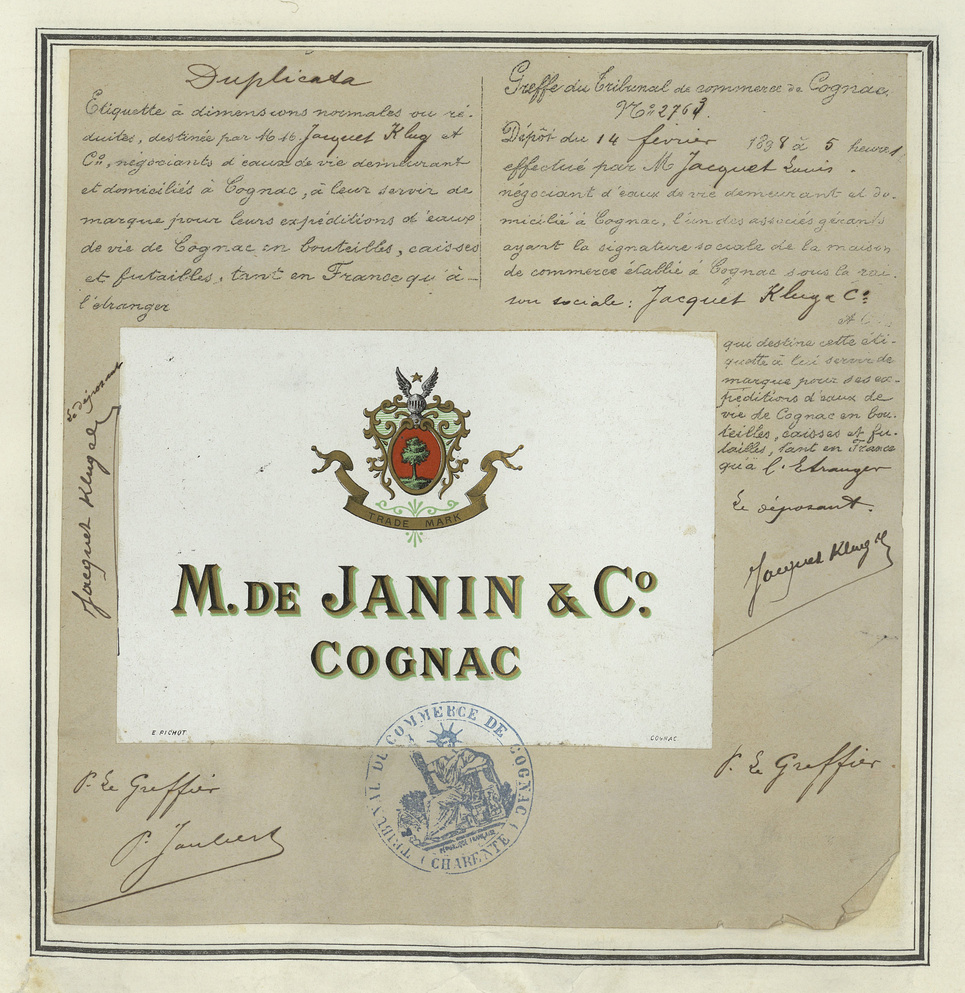 Duplicata
Etiquette à dimensions normales ou ré-
duites, destinée par M.M. Jacquet Klug et
Cie, négociants d'eaux de vie demeurant
et domiciliés à Cognac, à leur servir de
marque pour leurs expéditions d'eaux
de vie de Cognac en bouteilles, caisses
et futailles, tant en France qu'à
l'étranger
Greffe du Tribunal de commerce de Cognac.
No 2763.
Dépôt du 14 février 1898 à 5 heures
effectué par M Jacquet Louis.
négociant d'eaux de vie demeurant et do-
micilié à Cognac, l'un des associés gérants
ayant la signature sociale de la maison
de commerce établie à Cognac sous la rai-
son sociale: Jacquet Klug & Co
qui destine cette éti-
quette à lui servir de
marque pour ses ex-
péditions d'eaux de
vie de Cognac en bou-
teilles, caisses et fu-
tailles, tant en France
qu'à l'Etranger
Le déposant.
Jacquet Klug & Co
Le déposant
Jacquet Klug & Co
TRADE MARK
M. DE JANIN & Co.
COGNAC
E. PICHOT
COGNAC
TRIBUNAL DU COMMERCE DE COGNAC
(CHARENTE)
RÉPUBLIQUE FRANÇAISE
P. Le Greffier
P. Joubert
P. Le Greffier.